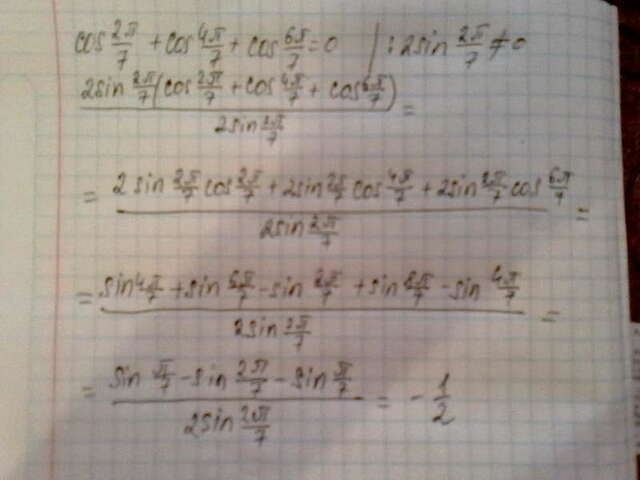 cos 2π/7 + cos 4π/7 + cos 6π/7 = 0 | : 2sin 2π/7 ≠ 0
2sin 2π/7 (cos 2π/7 + cos 4π/7 + cos 6π/7) / 2sin 2π/7 =
= 2 sin 2π/7 cos 2π/7 + 2sin 2π/7 cos 4π/7 + 2sin 2π/7 cos 6π/7 / 2sin 2π/7 =
= sin 4π/7 + sin 6π/7 - sin 2π/7 + sin 8π/7 - sin 4π/7 / 2sin 2π/7 =
= sin π/7 - sin 2π/7 - sin π/7 / 2sin 2π/7 = - 1/2